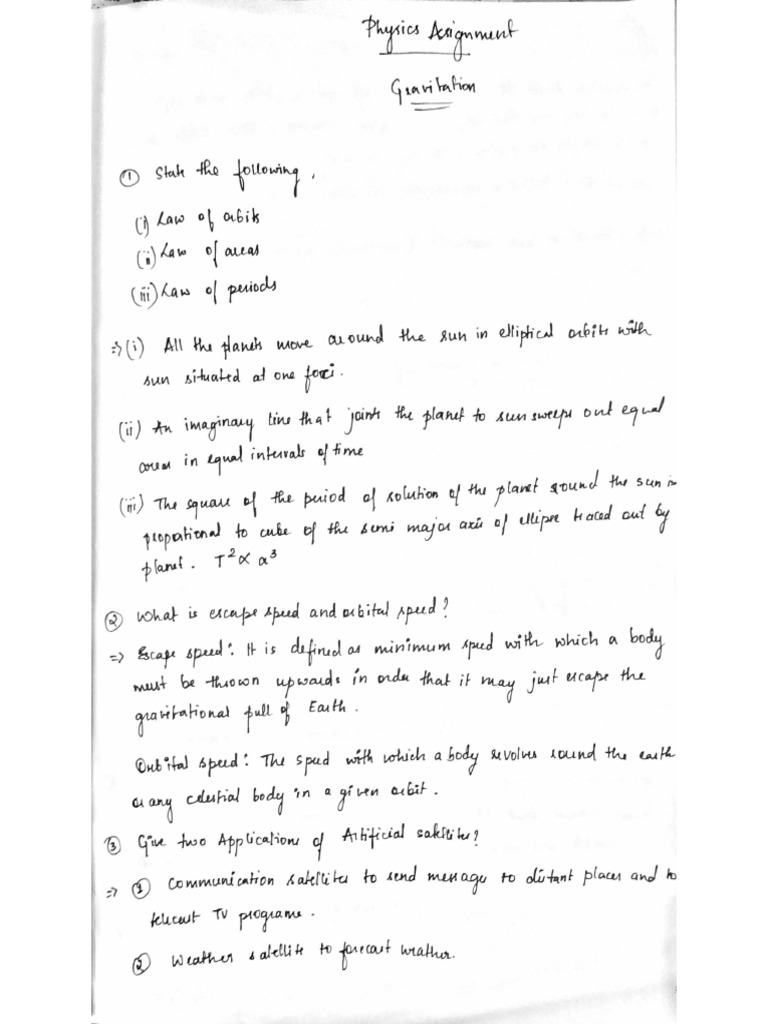 Physics Assignment
Gravitation
① State the following,
(i) Law of orbits
(ii) Law of areas
(iii) Law of periods
=> (i) All the planets move around the sun in elliptical orbits with
sun situated at one foci.
(ii) An imaginary line that joints the planet to sun sweeps out equal
areas in equal intervals of time
(iii) The square of the period of solution of the planet round the sun is
propotional to cube of the semi major axis of ellipse traced out by
planet. T² ∝ a³
② What is escape speed and orbital speed?
=> Escape speed: It is defined as minimum speed with which a body
must be thrown upwards in order that it may just escape the
gravitational pull of Earth.
Orbital speed: The speed with which a body revolves round the earth
or any celestial body in a given orbit.
③ Give two Applications of Artificial satellites?
=> ① Communication satellites to send message to distant places and to
telecast TV programs.
② Weather satellite to forecast weather.